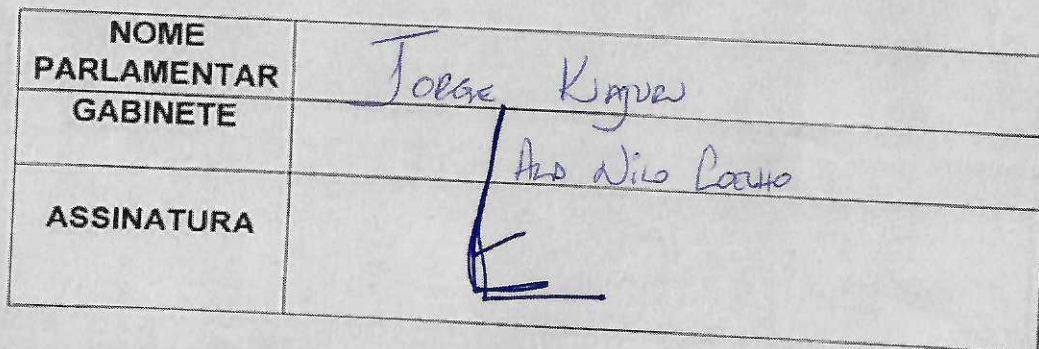 NOME
PARLAMENTAR
Jorge Kajuru
GABINETE
Ala Nilo Coelho
ASSINATURA